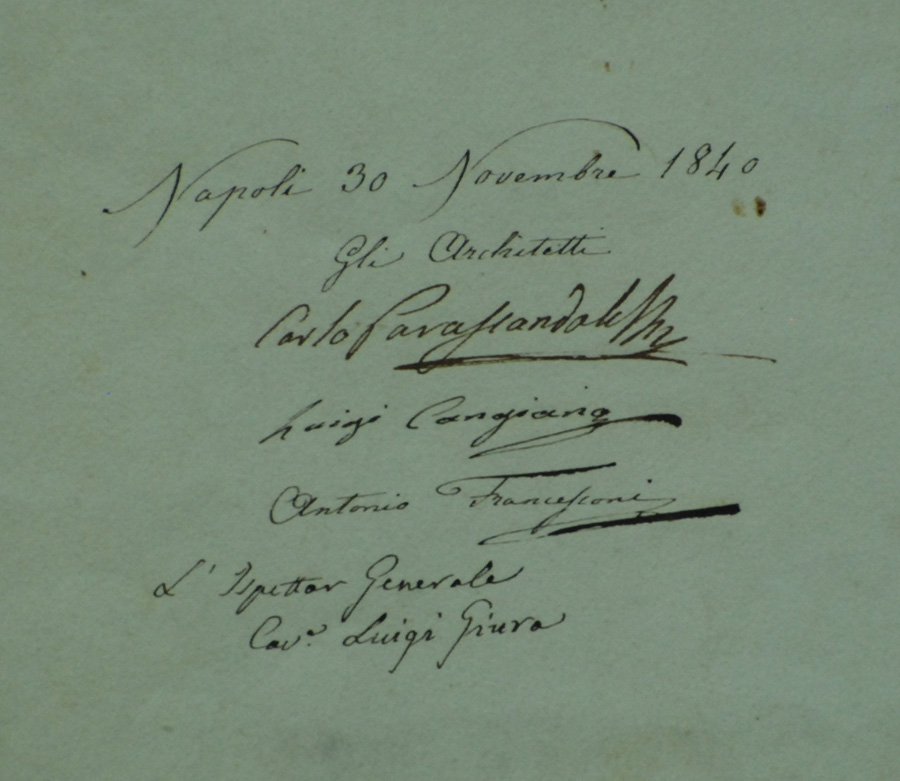 Napoli 30 Novembre 1840
Gli Architetti
Carlo Parascandolo
Luigi Cangiano
Antonio Francesconi
L' Ispettor Generale
Cav.e Luigi Giura